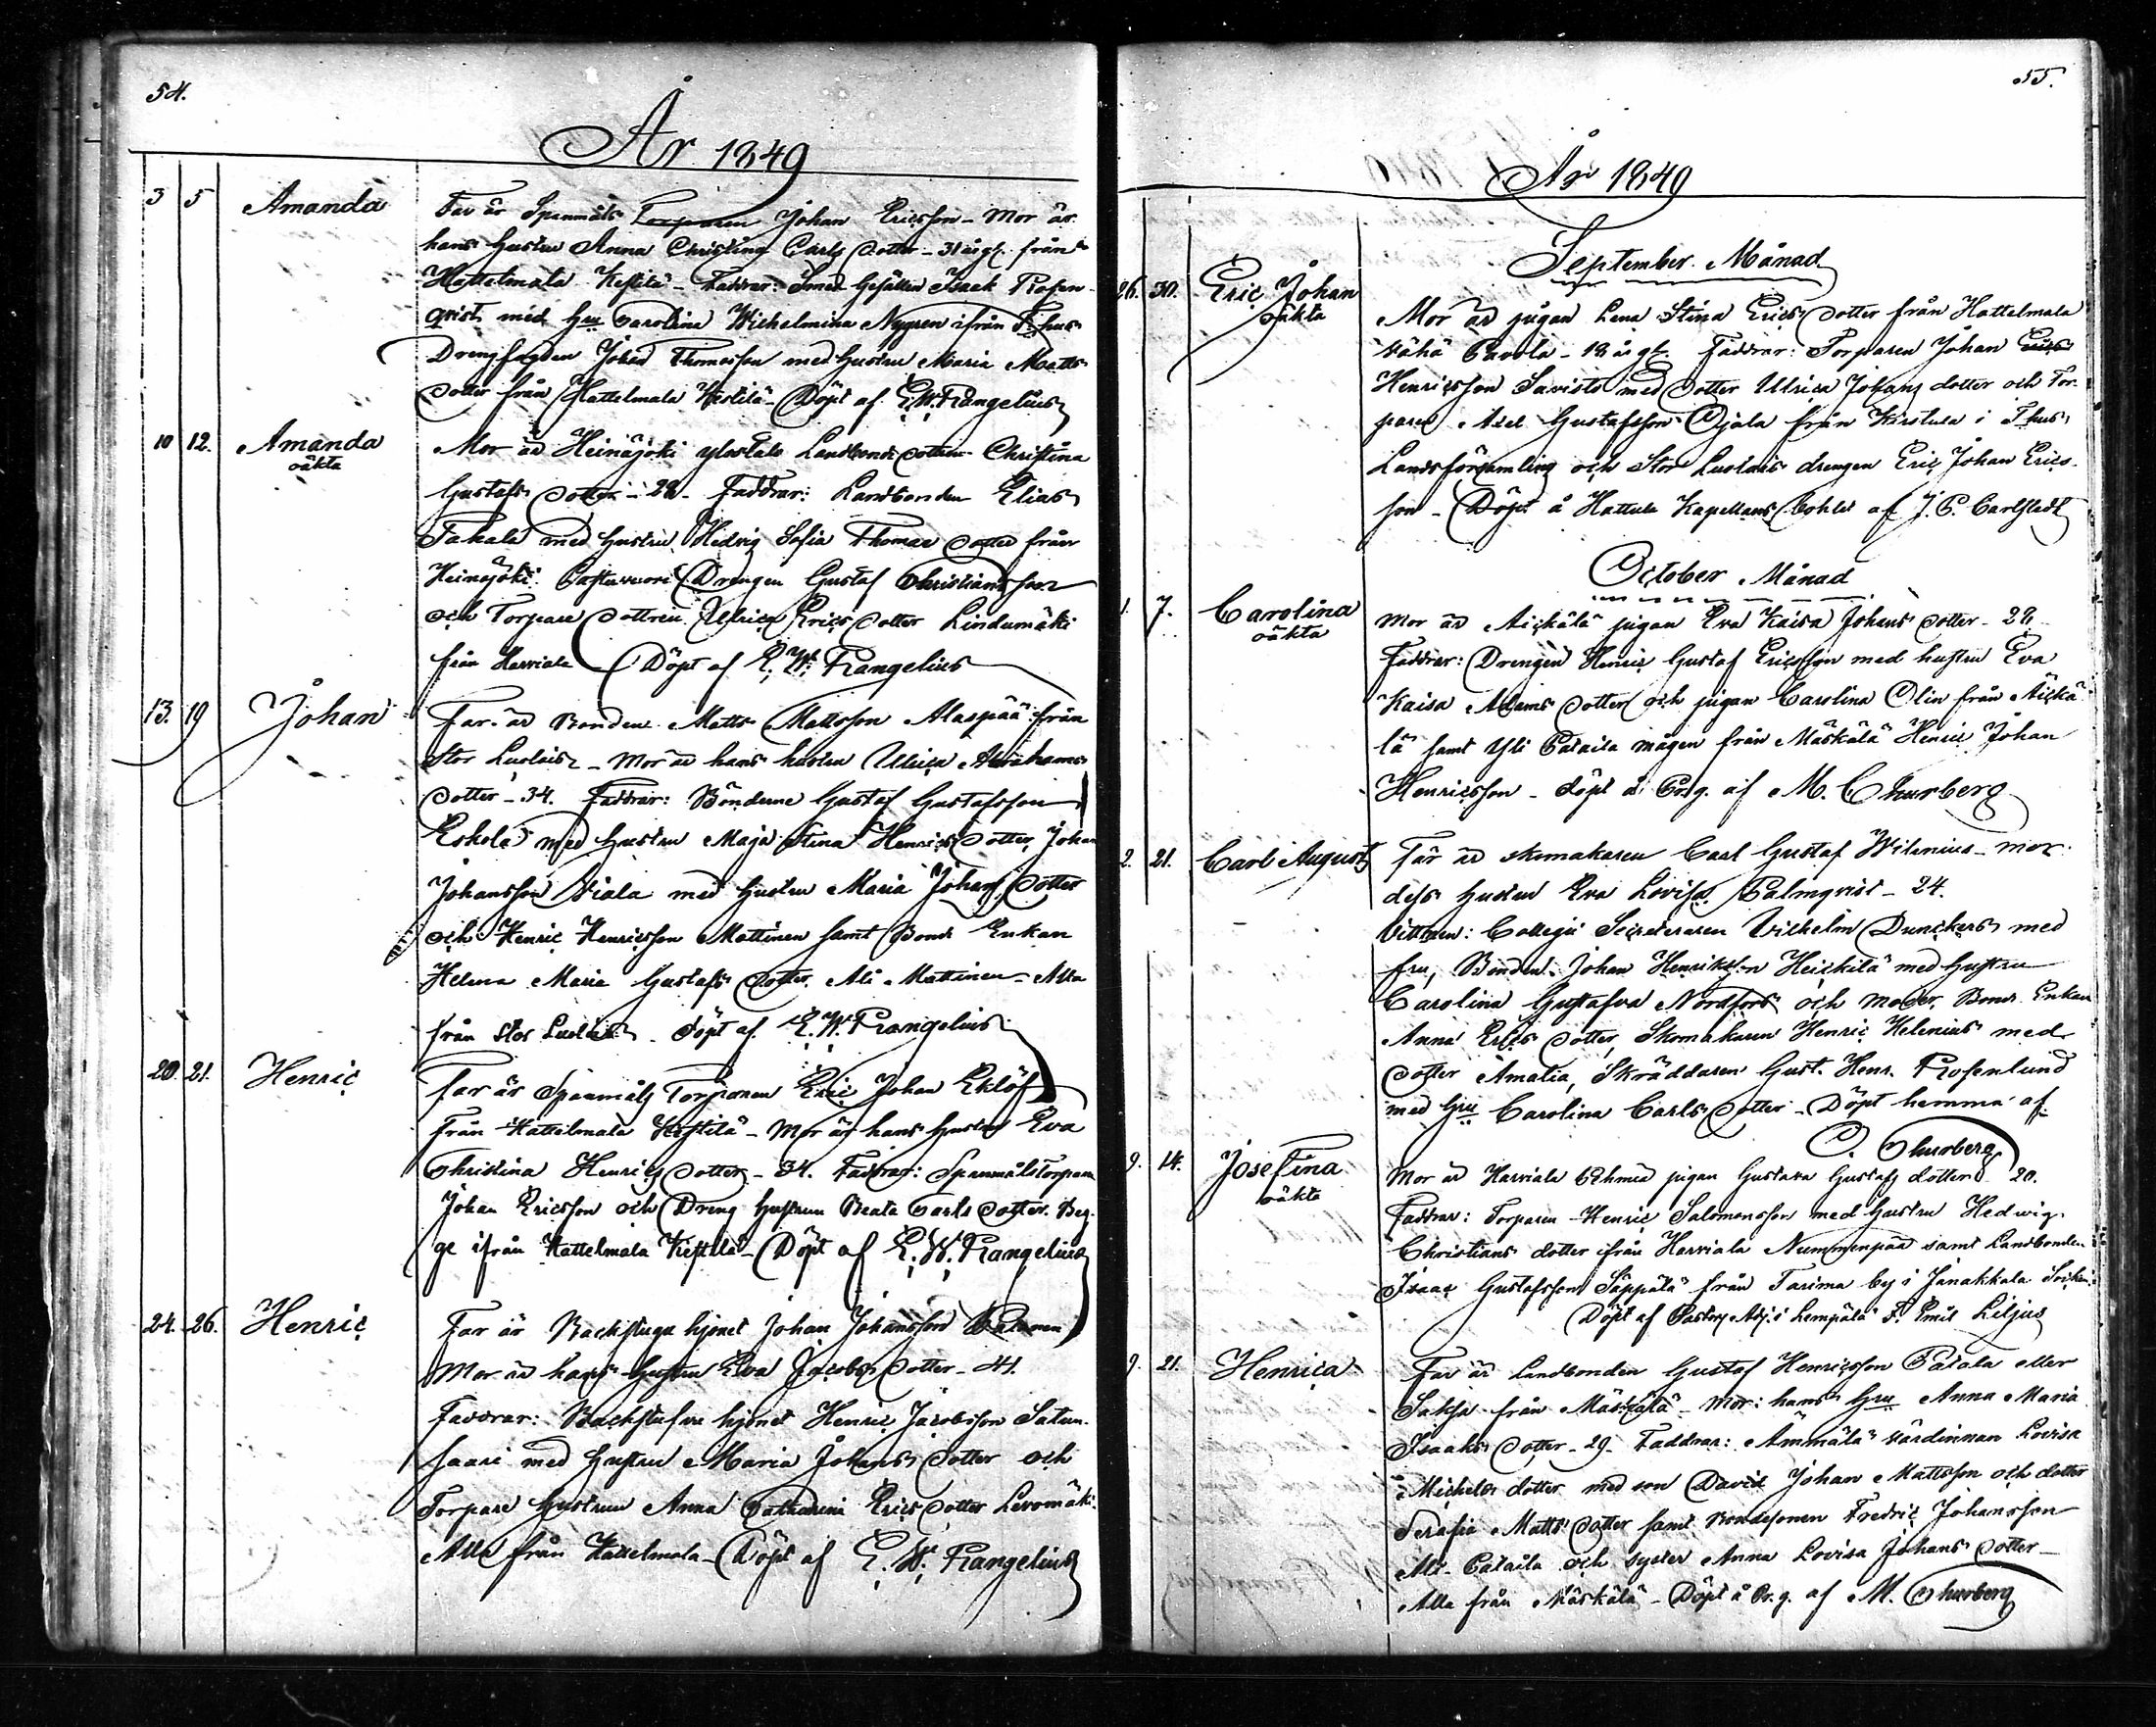 54.
År 1849
3 5 Amanda Far är Spanmåls Torparen Johan Ericsson – Mor är
hans hustru Anna Christina Carls dotter – 31 årgl. från
Hattelmala Kestilä – Faddrar: Smeds Gesällen Isaak Rosen
qvist med Hru Carolina Wilhelmina Nygren ifrån T:hus
Drengfogden Johan Thomasson med hustru Maria Matts
dotter från Hattelmala Kestilä – Döpt af E. W. Rangelius
10 12. Amanda Mor är Heinäjoki Landbonde dottren Christina
oäkta
Gustafs dotter – 28. Faddrar: Landbonden Elias
Takala med hustru Hedvig Sofia Thomas dotter från
Heinäjoki Drengen Gustaf Christiansson
och Torpare dottren Ulrica Erics dotter Lindumäki
från Harviala – Döpt af E. W. Rangelius
13. 19 Johan Far är Bonden Matts Mattsson Alaspää från
Stor Luolais – Mor är hans hustru Ulrica Abrahams
dotter – 34. Faddrar: Bönderne Gustaf Gustafsson
Eskola med hustru Maja Stina Henrics dotter, Johan
Johansson Wiala med hustru Maria Johans dotter
och Henric Henricsson Mattinen samt Bonde Enkan
Helena Maria Gustafs dotter Ali Mattinen – Alla
från Stor Luolais. Döpt af E. W. Rangelius
20. 21. Henric Far är Spanmåls Torparen Eric Johan Eklöf
från Hattelmala Kestilä – Mor är hans hustru Eva
Christina Henrics dotter – 34. Faddrar: Spanmålstorparn
Johan Ericsson och Dreng hustrun Beata Carls dotter. Beg-
ge ifrån Hattelmala Kestilä – Döpt af E. W. Rangelius
24. 26. Henric Far är Backstugu hjonet Johan Johansson
Mor är hans hustru Eva Jacobs dotter – 44.
Faddrar: Backstufvu hjonet Henric Jacobsson Salun-
saari med hustru Maria Johans dotter och
Torpare hustrun Anna Catharina Erics dotter Levomäki
Alla från Hattelmala – Döpt af E. W. Rangelius
55.
År 1849
September Månad
26. 30. Eric Johan
oäkta
Mor är pigan Lena Stina Erics dotter från Hattelmala
Vähä Pavola – 18 årgl. Faddrar: Torparen Johan Erics
Henricsson Savisto med dotter Ulrica Johans dotter och Tor-
paren Axel Gustafsson Ojala från Kirstula i T:hus
Landsförsamling och Stor Luolais drengen Eric Johan Erics-
son – Döpt å Hattula Kapellans Bohle af J. P. Carlstedt
October Månad
1. 7. Carolina Mor är Äickälä pigan Eva Kaisa Johans dotter – 28.
oäkta
Faddrar: Drengen Henric Gustaf Ericsson med hustru Eva
Kaisa Adams dotter och pigan Carolina Olin från Äickä
lä samt Yli Pataila mågen från Mäskälä Henric Johan
Henricsson – döpt å Pr.g. af M. Churberg
2. 21. Carl August Far är skomakaren Carl Gustaf Wilenius – mor
dess hustru Eva Lovisa Palmqvist – 24.
Vittnen: Collegii Secreteraren Wilhelm Dunckers med
fru, Bonden Johan Henriksson Heickilä med hustru
Carolina Gustafva Nordfors och moder Bonde Enkan
Anna Erics dotter, Skomakaren Henric Helenius med
dotter Amalia, Skräddaren Gust. Henr. Rosenlund
med Hru Carolina Carls dotter – Döpt hemma af
O. Churberg
9. 14. Josefina Mor är Harviala pigan Gustava Gustafs dotter 20.
oäkta
Faddrar: Torparen Henric Salomonsson med hustru Hedwig
Christians dotter ifrån Harviala Nummenpää samt Landbonden
Isaac Gustafsson Säppälä från Tarima by i Janakkala Socken
Döpt af Pastors Adj. i Lempälä F. Emil Liljus
9. 21. Henrica Far är Landbonden Gustaf Henricsson Patala eller
Saksa från Mäskälä – Mor: hans Hru Anna Maria
Isaaks dotter – 29. Faddrar: Ämmälä värdinnan Lovisa
Michels dotter med son David Johan Mattsson och dotter
Serafia Matts dotter samt Bondesonen Fredric Johansson
Ali Pataila och syster Anna Lovisa Johans dotter –
Alla från Mäskälä – Döpt å Pr.g. af M. Churberg